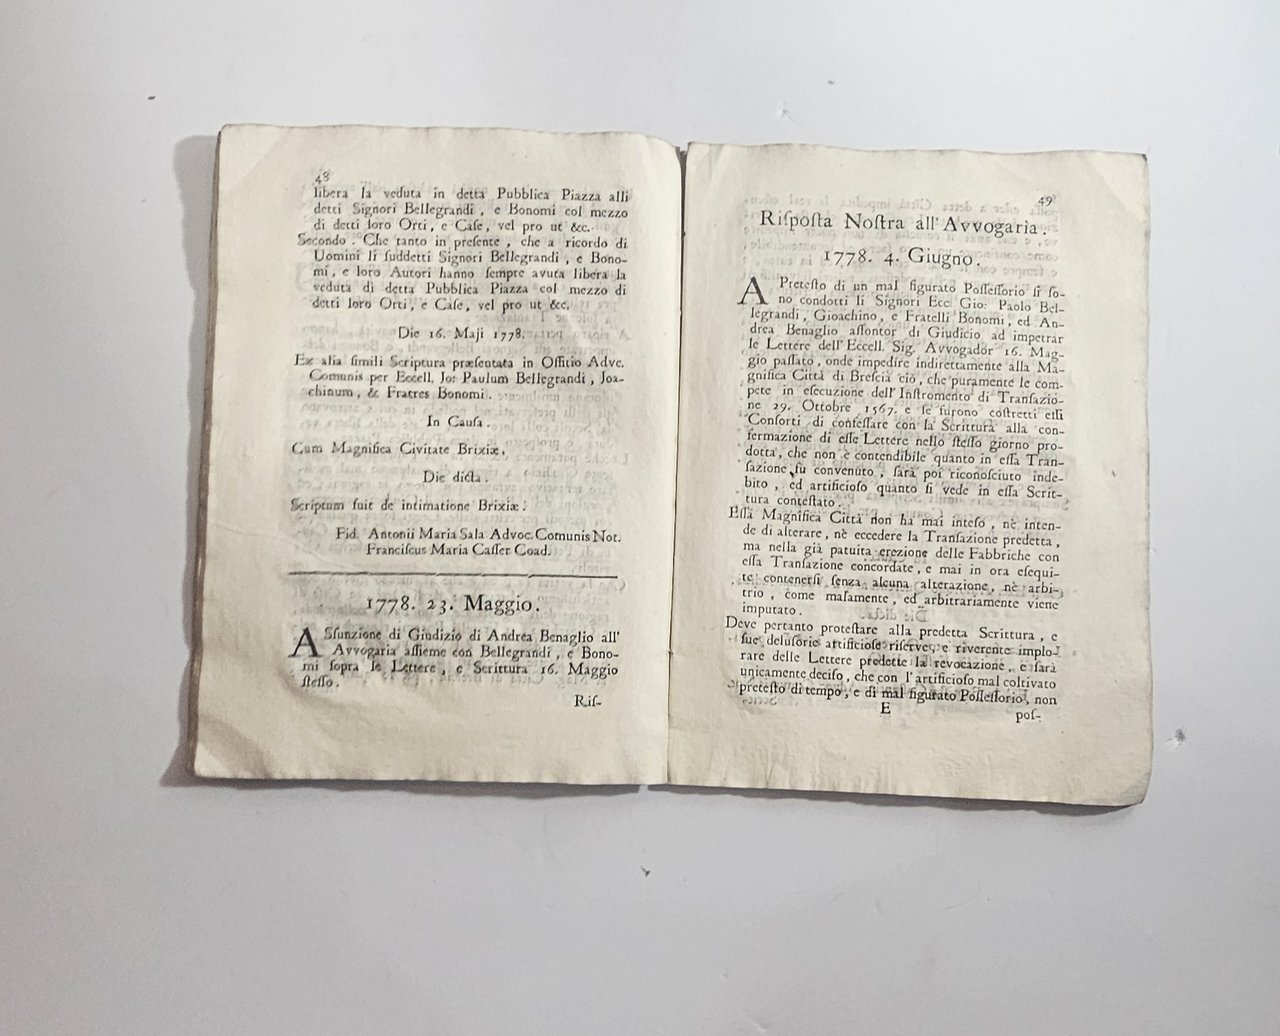 48
libera la veduta in detta Pubblica Piazza alli
detti Signori Bellegrandi , e Bonomi col mezzo
di detti loro Orti, e Caſe, vel pro ut &c.
Secondo . Che tanto in preſente , che a ricordo di
Uomini li ſuddetti Signori Bellegrandi , e Bono-
mi , e loro Autori hanno ſempre avuta libera la
veduta di detta Pubblica Piazza col mezzo di
detti loro Orti , e Caſe, vel pro ut &c.
Die 16. Maji 1778.
Ex alia ſimili Scriptura præſentata in Offitio Advc.
Comunis per Eccell. Jo: Paulum Bellegrandi , Joa-
chinum , & Fratres Bonomi .
In Cauſa .
Cum Magnifica Civitate Brixiæ.
Die dicta .
Scriptum fuit de intimatione Brixiæ .
Fid. Antonii Maria Sala Advoc. Comunis Not.
Franciſcus Maria Caſſer Coad.
1778. 23. Maggio.
ASſunzione di Giudizio di Andrea Benaglio all'
Avvogaria aſſieme con Bellegrandi , e Bono-
mi ſopra le Lettere , e Scrittura 16. Maggio
ſteſſo .
Riſ-
49
Riſpoſta Noſtra all' Avvogaria .
1778. 4. Giugno.
APreteſto di un mal figurato Poſſeſſorio ſi ſo-
no condotti li Signori Ecc. Gio: Paolo Bel-
legrandi , Gioachino , e Fratelli Bonomi , ed An-
drea Benaglio aſſontor di Giudicio ad impetrar
le Lettere dell' Eccell. Sig. Avvogadòr 16. Mag-
gio paſſato , onde impedire indirettamente alla Ma-
gnifica Città di Breſcia ciò , che puramente le com-
pete in eſecuzione dell' Inſtromento di Tranſazio-
ne 29. Ottobre 1567. e ſe furono coſtretti eſſi
Conſorti di confeſſare con la Scrittura alla con-
fermazione di eſſe Lettere nello ſteſſo giorno pro-
dotta , che non è contendibile quanto in eſſa Tran-
ſazione fu convenuto , ſarà poi riconoſciuto inde-
bito , ed artificioſo quanto ſi vede in eſſa Scrit-
tura conteſtato .
Eſſa Magnifica Città non ha mai inteſo , nè inten-
de di alterare, nè eccedere la Tranſazione predetta ,
ma nella già patuita erezione delle Fabbriche con
eſſa Tranſazione concordate , e mai in ora eſequi-
te contenerſi ſenza alcuna alterazione , nè arbi-
trio , come malamente , ed arbitrariamente viene
imputato .
Deve pertanto proteſtare alla predetta Scrittura , e
ſue deluſorie artificioſe riſerve , e riverente implo-
rare delle Lettere predette la revocazione , e ſarà
unicamente deciſo , che con l' artificioſo mal coltivato
preteſto di tempo , e di mal figurato Poſſeſſorio , non
E
poſ-